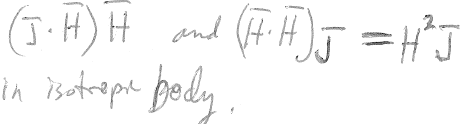 (J̄·H̄) H̄ and (H̄·H̄) J̄ = H²J̄
in isotropic body.